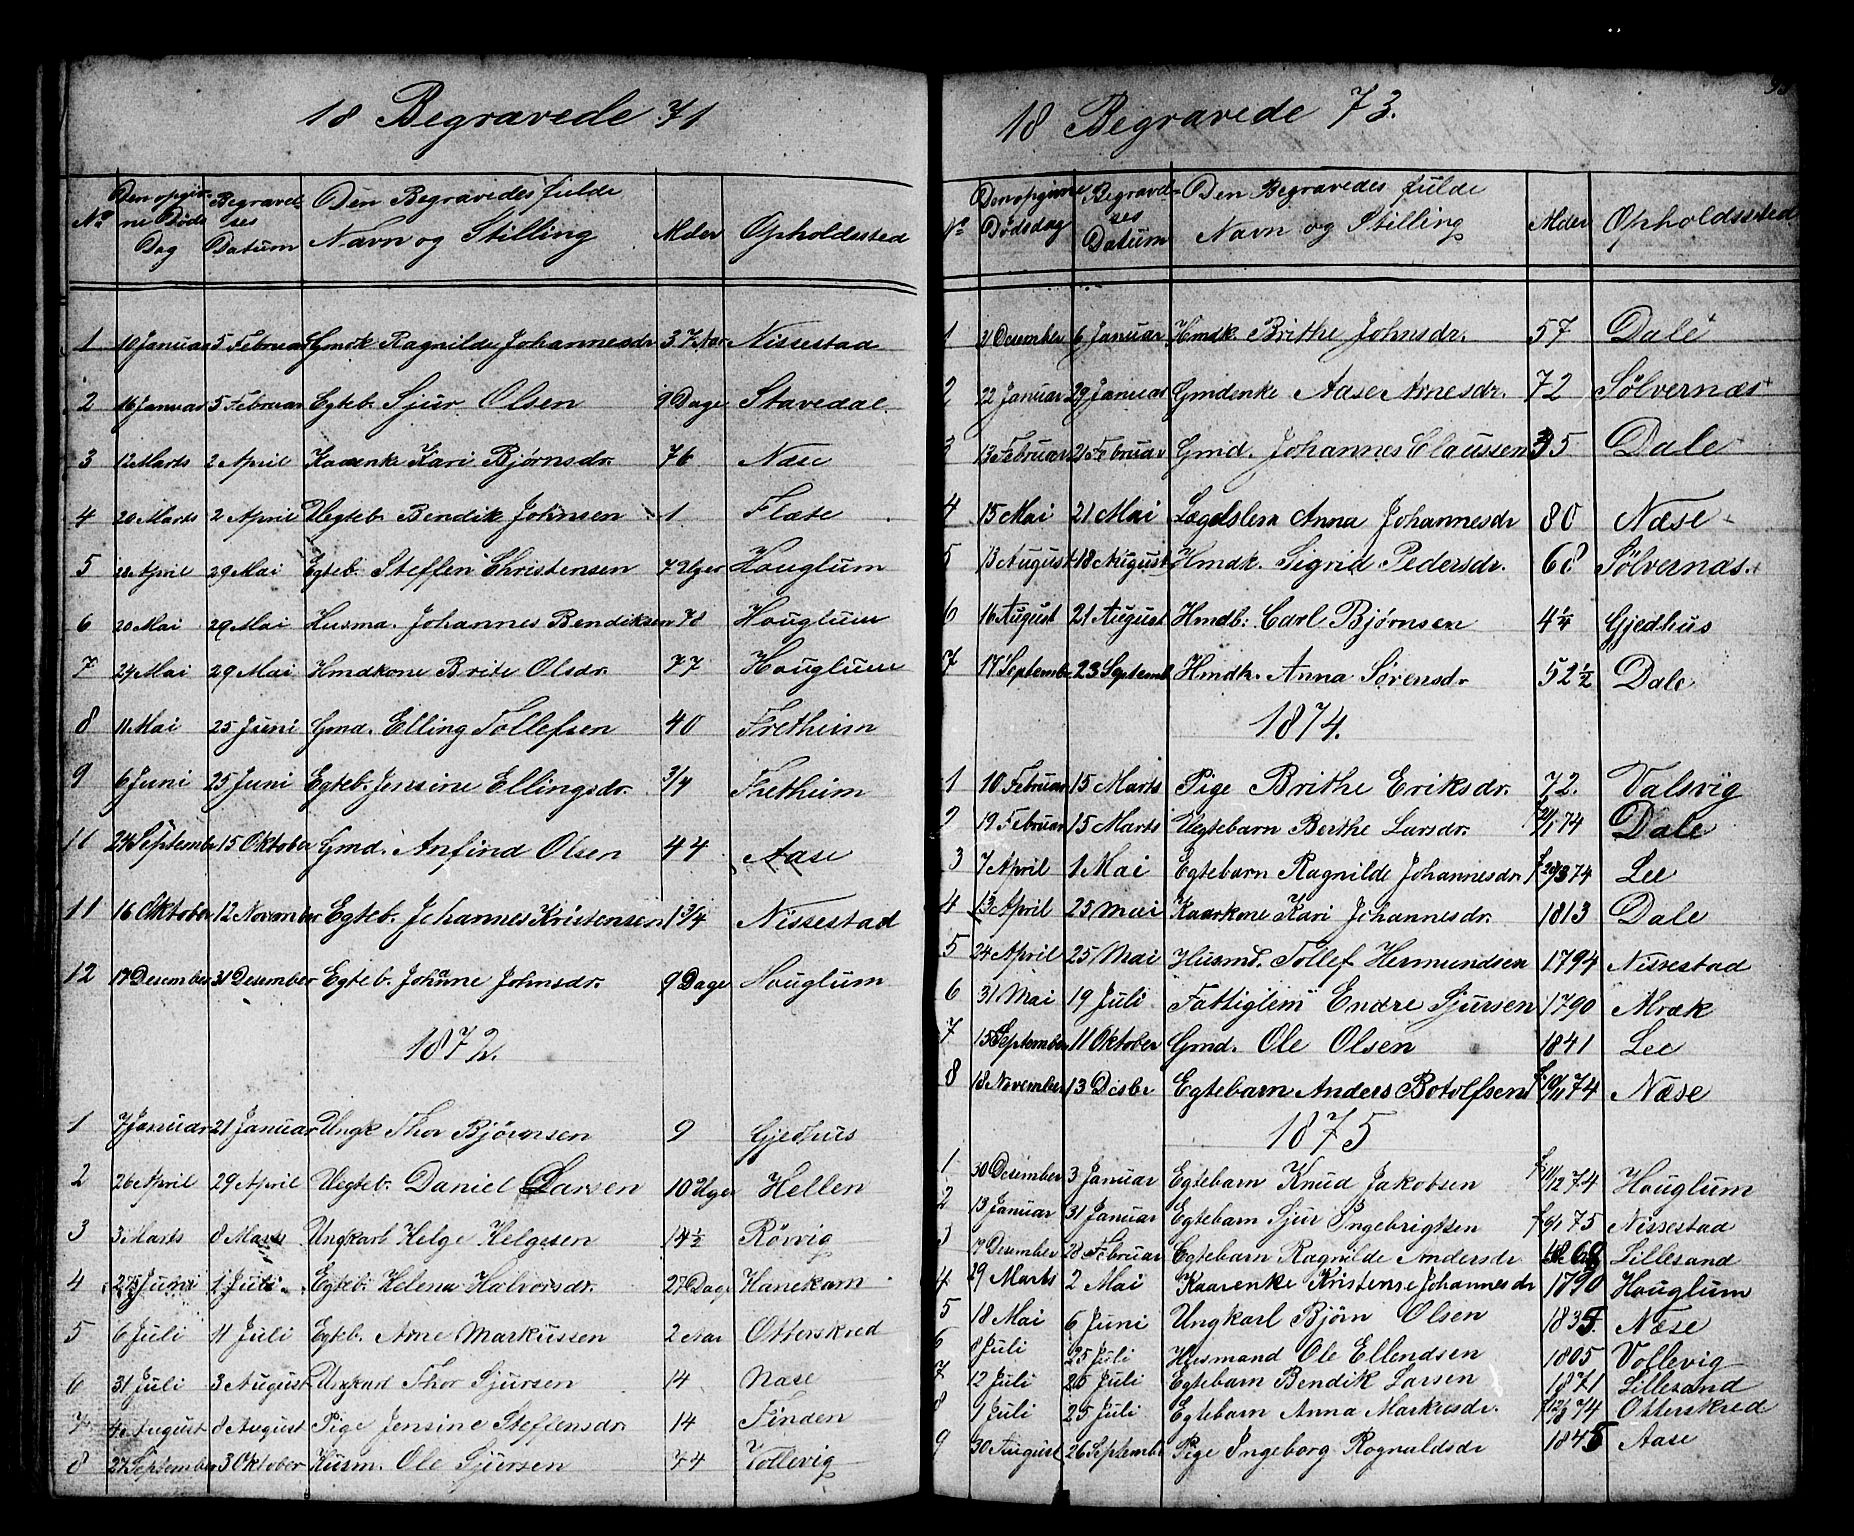 18 Begravede 71
No | Den opgivne Døds Dag | Begravelses Datum | Den Begravedes fulde Navn og Stilling | Alder | Opholdssted
1 | 10 Januar | 5 Februar | Gmdk Ragnilde Johannesdr | 37 Aar | Nissestad
2 | 16 Januar | 5 Februar | Egteb. Sjur Olsen | 9 Dage | Stavedal
3 | 12 Marts | 2 April | Kaarenke Kari Bjørnsdr. | 76 | Næse
4 | 20 Marts | 2 April | Uegteb. Bendik Johnsen | 1 | Flæte
5 | 28 April | 29 Mai | Egteb. Steffen Christensen | 7 Uger | Houglum
6 | 20 Mai | 29 Mai | Husma. Johannes Bendiksen | 78 | Houglum
7 | 24 Mai | 29 Mai | Hmdkone Brite Olsdr. | 77 | Houglum
8 | 11 Mai | 25 Juni | Gmd. Elling Tollefsen | 40 | Fretheim
9 | 6 Juni | 25 Juni | Egteb. Jensine Ellingsdr. | 3/4 | Fretheim
10 | 24 September | 15 Oktober | Gmd. Anfind Olsen | 44 | Aase
11 | 16 Oktober | 12 November | Egteb. Johannes Kristensen | 1 3/4 | Nissestad
12 | 17 Desember | 31 Desember | Egteb. Johanne Johnsdr. | 9 Dage | Houglum
1872.
1 | 7 Januar | 21 Januar | Ungk Thor Bjørnsen | 9 | Gjedhus
2 | 26 April | 29 April | Uegteb. Daniel Larsen | 10 Uger | Hellen
3 | 3 Marts | 8 Marts | Ungkarl Helge Helgesen | 14 1/2 | Rørvig
4 | 27 Juni | 1 Juli | Egteb. Helena Halvorsdr. | 27 Dage | Hanekam
5 | 6 Juli | 11 Juli | Egteb. Arne Markussen | 2 Aar | Otterskred
6 | 31 Juli | 3 August | Ungkarl Thor Sjursen | 14 | Næse
7 | 4 August | 8 August | Pige Jensine Steffensdr. | 14 | Finden
8 | 27 September | 3 Oktober | Husm. Ole Sjursen | 74 | Vollevig
18 Begravede 73.
No | Den opgivne Dødsdag | Begravelses Datum | Den Begravedes fulde Navn og Stilling | Alder | Opholdssted
1 | 31 Desember | 6 Januar | Hmdk. Brithe Johnsdr. | 57 | Dale
2 | 22 Januar | 29 Januar | Gmdenke Aase Arnesdr. | 72 | Sølvernæs
3 | 13 Februar | 21 Februar | Gmd. Johannes Claussen | 35 | Dale
4 | 15 Mai | 21 Mai | Lægdslem Anna Johannesdr | 80 | Næse
5 | 13 August | 18 August | Hmdk. Sigrid Pedersdr. | 68 | Sølvernæs.
6 | 16 August | 21 August | Hmdb: Carl Bjørnsen | 4 1/4 | Gjedhus
7 | 17 September | 23 Septemb | Hmdk. Anna Sørensdr | 52 1/2 | Dale
1874.
1 | 10 Februar | 15 Marts | Pige Brithe Eriksdr. | 72. | Valsvig
2 | 19 Februar | 15 Marts | Uegtebarn Berthe Larsdr. | f 21/1 74 | Dale
3 | 7 April | 1 Mai | Egtebarn Ragnilde Johannesdr | f 20/3 74 | Lee
4 | 13 April | 25 Mai | Kaarkone Kari Johannesdr. | 1813 | Dale
5 | 24 April | 25 Mai | Husmd. Tollef Hermundsen | 1794 | Nissestad
6 | 31 Mai | 19 Juli | Fattiglem Endre Sjursen | 1790 | Mræk
7 | 15 September | 11 Oktober | Gmd. Ole Olsen | 1841 | Lee
8 | 18 November | 13 Desbr | Egtebarn Anders Botolfsen | f. 10/11 74 | Næse
1875
1 | 30 Desember | 3 Januar | Egtebarn Knud Jakobsen | f. 11/12 74 | Houglum
2 | 13 Januar | 31 Januar | Egtebarn Sjur Ingebrigtsen | f 6/1 75 | Nissestad
3 | 9 Desember | 28 Februar | Egtebarn Ragnilde Andersdr | 1868 | Lillesand
4 | 29 Marts | 2 Mai | Kaarenke Kristense Johannesdr | 1790 | Houglum
5 | 18 Mai | 6 Juni | Ungkarl Bjørn Olsen | 1835 | Næse
6 | 8 Juli | 25 Juli | Husmand Ole Ellendsen | 1805 | Vollevig
7 | 12 Juli | 25 Juli | Egtebarn Bendik Larsen | 1871 | Lillesand
8 | 1 Juli | 25 Juli | Egtebarn Anna Markusdr. | 74 | Otterskred
9 | 30 August | 26 Septemb | Pige Ingeborg Rognaldsdr | 1845 | Aase